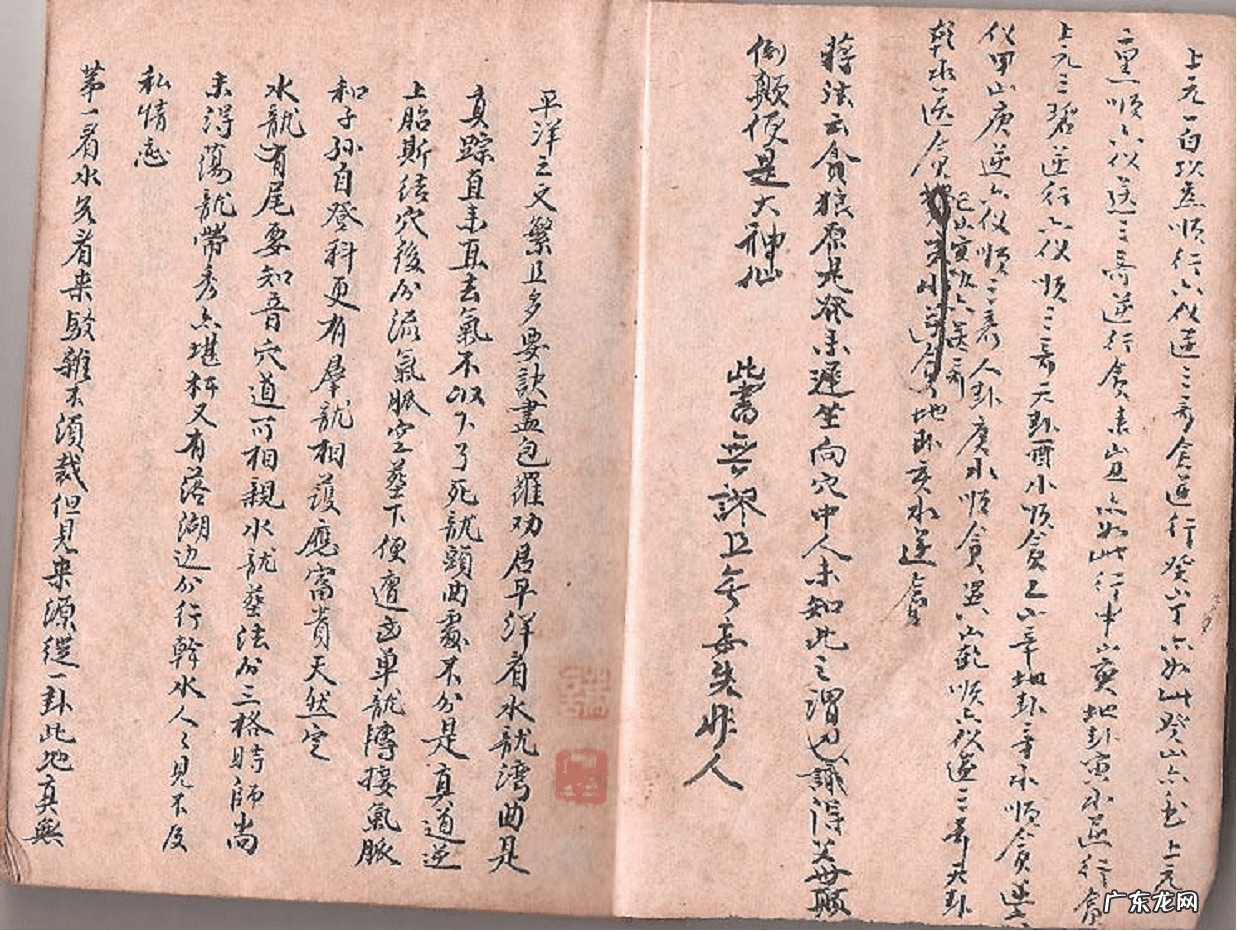 上元一白坎卦順行六仪逆三奇貪逆行癸山丁亦如此癸山亦至上元
二黑順六仪逆三奇逆行貪未山丑亦如此行申山寅地卦寅水逆行貪
上元三碧逆行六仪順三奇天卦酉水順貪乙山辛地卦辛水順貪逆六
仪甲山庚逆六仪順三奇人卦庚水順貪巽山乾順六仪逆三奇天卦
乾水逆貪地卦亥水逆貪
蔣法云貪狼原是發來遲坐向穴中人未知此之謂也識得父母顛
倒顛便是大神仙 此書無謬且無妄失非人
平洋之文繁且多要訣盡包羅劝君平洋看水龍湾曲是
真踪直来直去氣不收下了死龍頭曲處不分是真道逆
上胎斯结穴後分流氣脈空葬下便遭凶單龍博接氣脈
和子孫自登科更有羣龍相護應富貴天然定
水龍有尾要知音穴道可相親水龍葬法分三格時師尚
未得蕩龍帶秀亦堪杯又有落湖边分行幹水人々見不及
私情恋
第一看水名看来駁雜不須裁但見来源從一卦此地真無
广东龙网